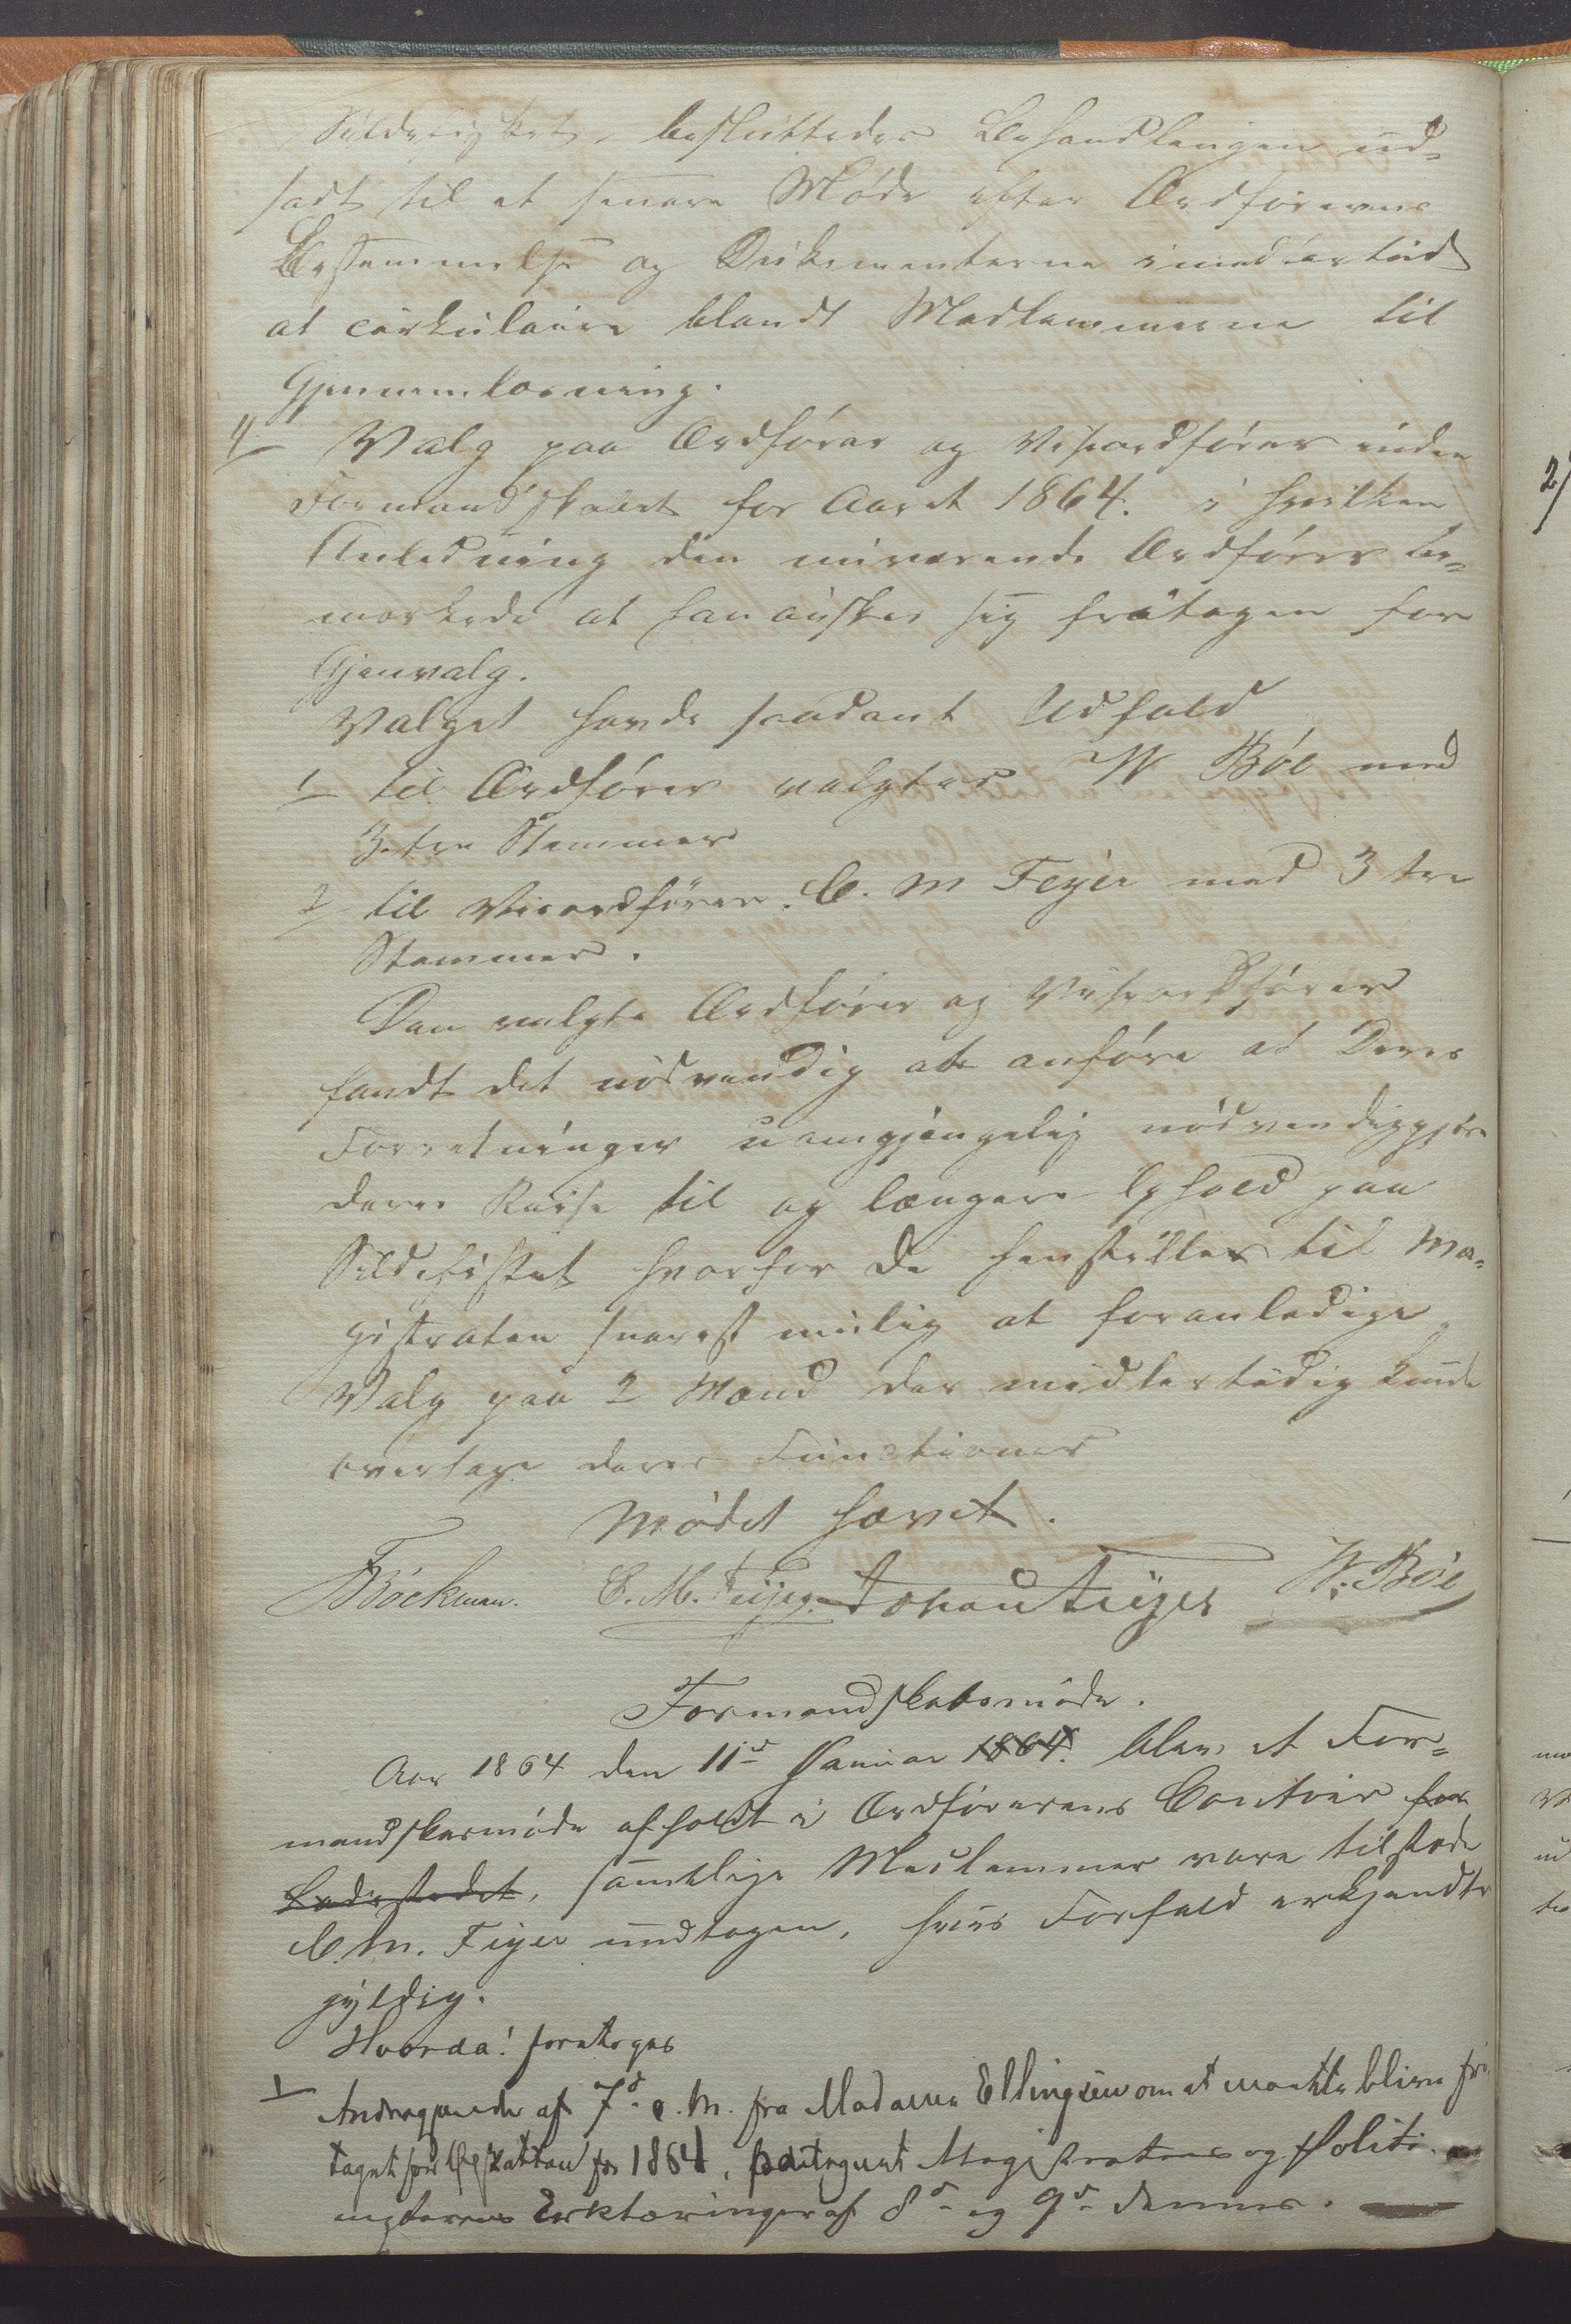 Sildefisket, besluttedes Behandlingen ud-
sadt til et senere Møde efter Ordførerens
Bestemmelse og Dokumenterne imidlertid
at cirkulaire blandt Medlemmerne til
Gjennemlæsning.
4 Valg paa Ordfører og Viseordfører inden
Formandskabet for Aaret 1864. i hvilken
Anledning den nuværende Ordfører be-
mærkede at han ønsker sig fritagen for
Gjenvalg.
Valget havde saadant Udfald
1 til Ordfører valgtes W Bøe med
3 tre Stemmer
2 til Viceordfører C. M Feyer med 3 tre
Stemmer.
Den valgte Ordfører og Viseordfører
fandt det nødvendig at anføre at Deres
Forretninger uomgjængelig nødvendiggjøre
deres Reise til og længere Ophold paa
Sildefisket hvorfor de henstiller til Ma-
gistraten snarest mulig at foranledige
Valg paa 2 Mænd der midlertidig kunde
overtage deres Functioner
Mødet hævet.
Bøckman. C. M. Feyer. Johan Feyer W. Bøe
Formandskabsmøde.
Aar 1864 den 11te Januar 1864. blev et For-
mandskabsmøde afholdt i Ordførerens Contoir for
Ladestedet, samtlige Medlemmer vare tilstede
C. M. Feyer undtagen, hvis Forfald erkjendtes
gyldig.
Hvorda! foretoges
1 Andragende af 7de d. M. fra Madame Ellingsen om at maatte blive fri-
taget for Skatten for 1864, paategnet Magistratens og Politi-
mesterens Erklæringer af 8de og 9de dennes.
2/